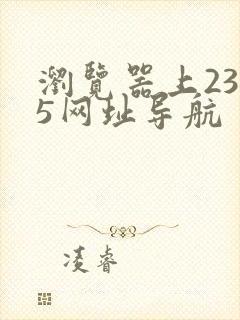 瀏覽器上23
5网址导航
凌睿